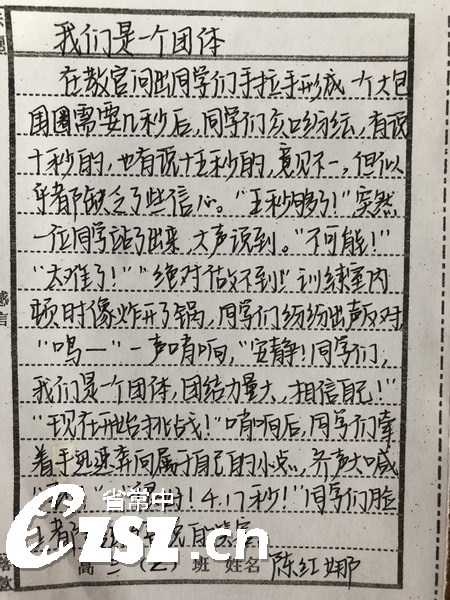 我们是一个团体
在教官问出同学们手拉手形成一个大包
围圈需要几秒后,同学们众口纷纭,有说
十秒的,也有说十五秒的,意见不一,但似
乎都缺乏了些信心。“五秒够了!”突然
一位同学站了出来,大声说到。“不可能!”
“太难了!”“绝对做不到!”训练室内
顿时像炸开了锅,同学们纷纷出声反对
“鸣一”一声哨响,“安静!同学们,
我们是一个团体,团结力量大,相信自己!”
“现在开始挑战!”哨响后,同学们牵
着手迅速奔向属于自己的小点,齐声大喊
的!4.17秒!”同学们脸
上都
感言
省常中
CZSZ.cn
高三(乙)班 姓名 陈红娜